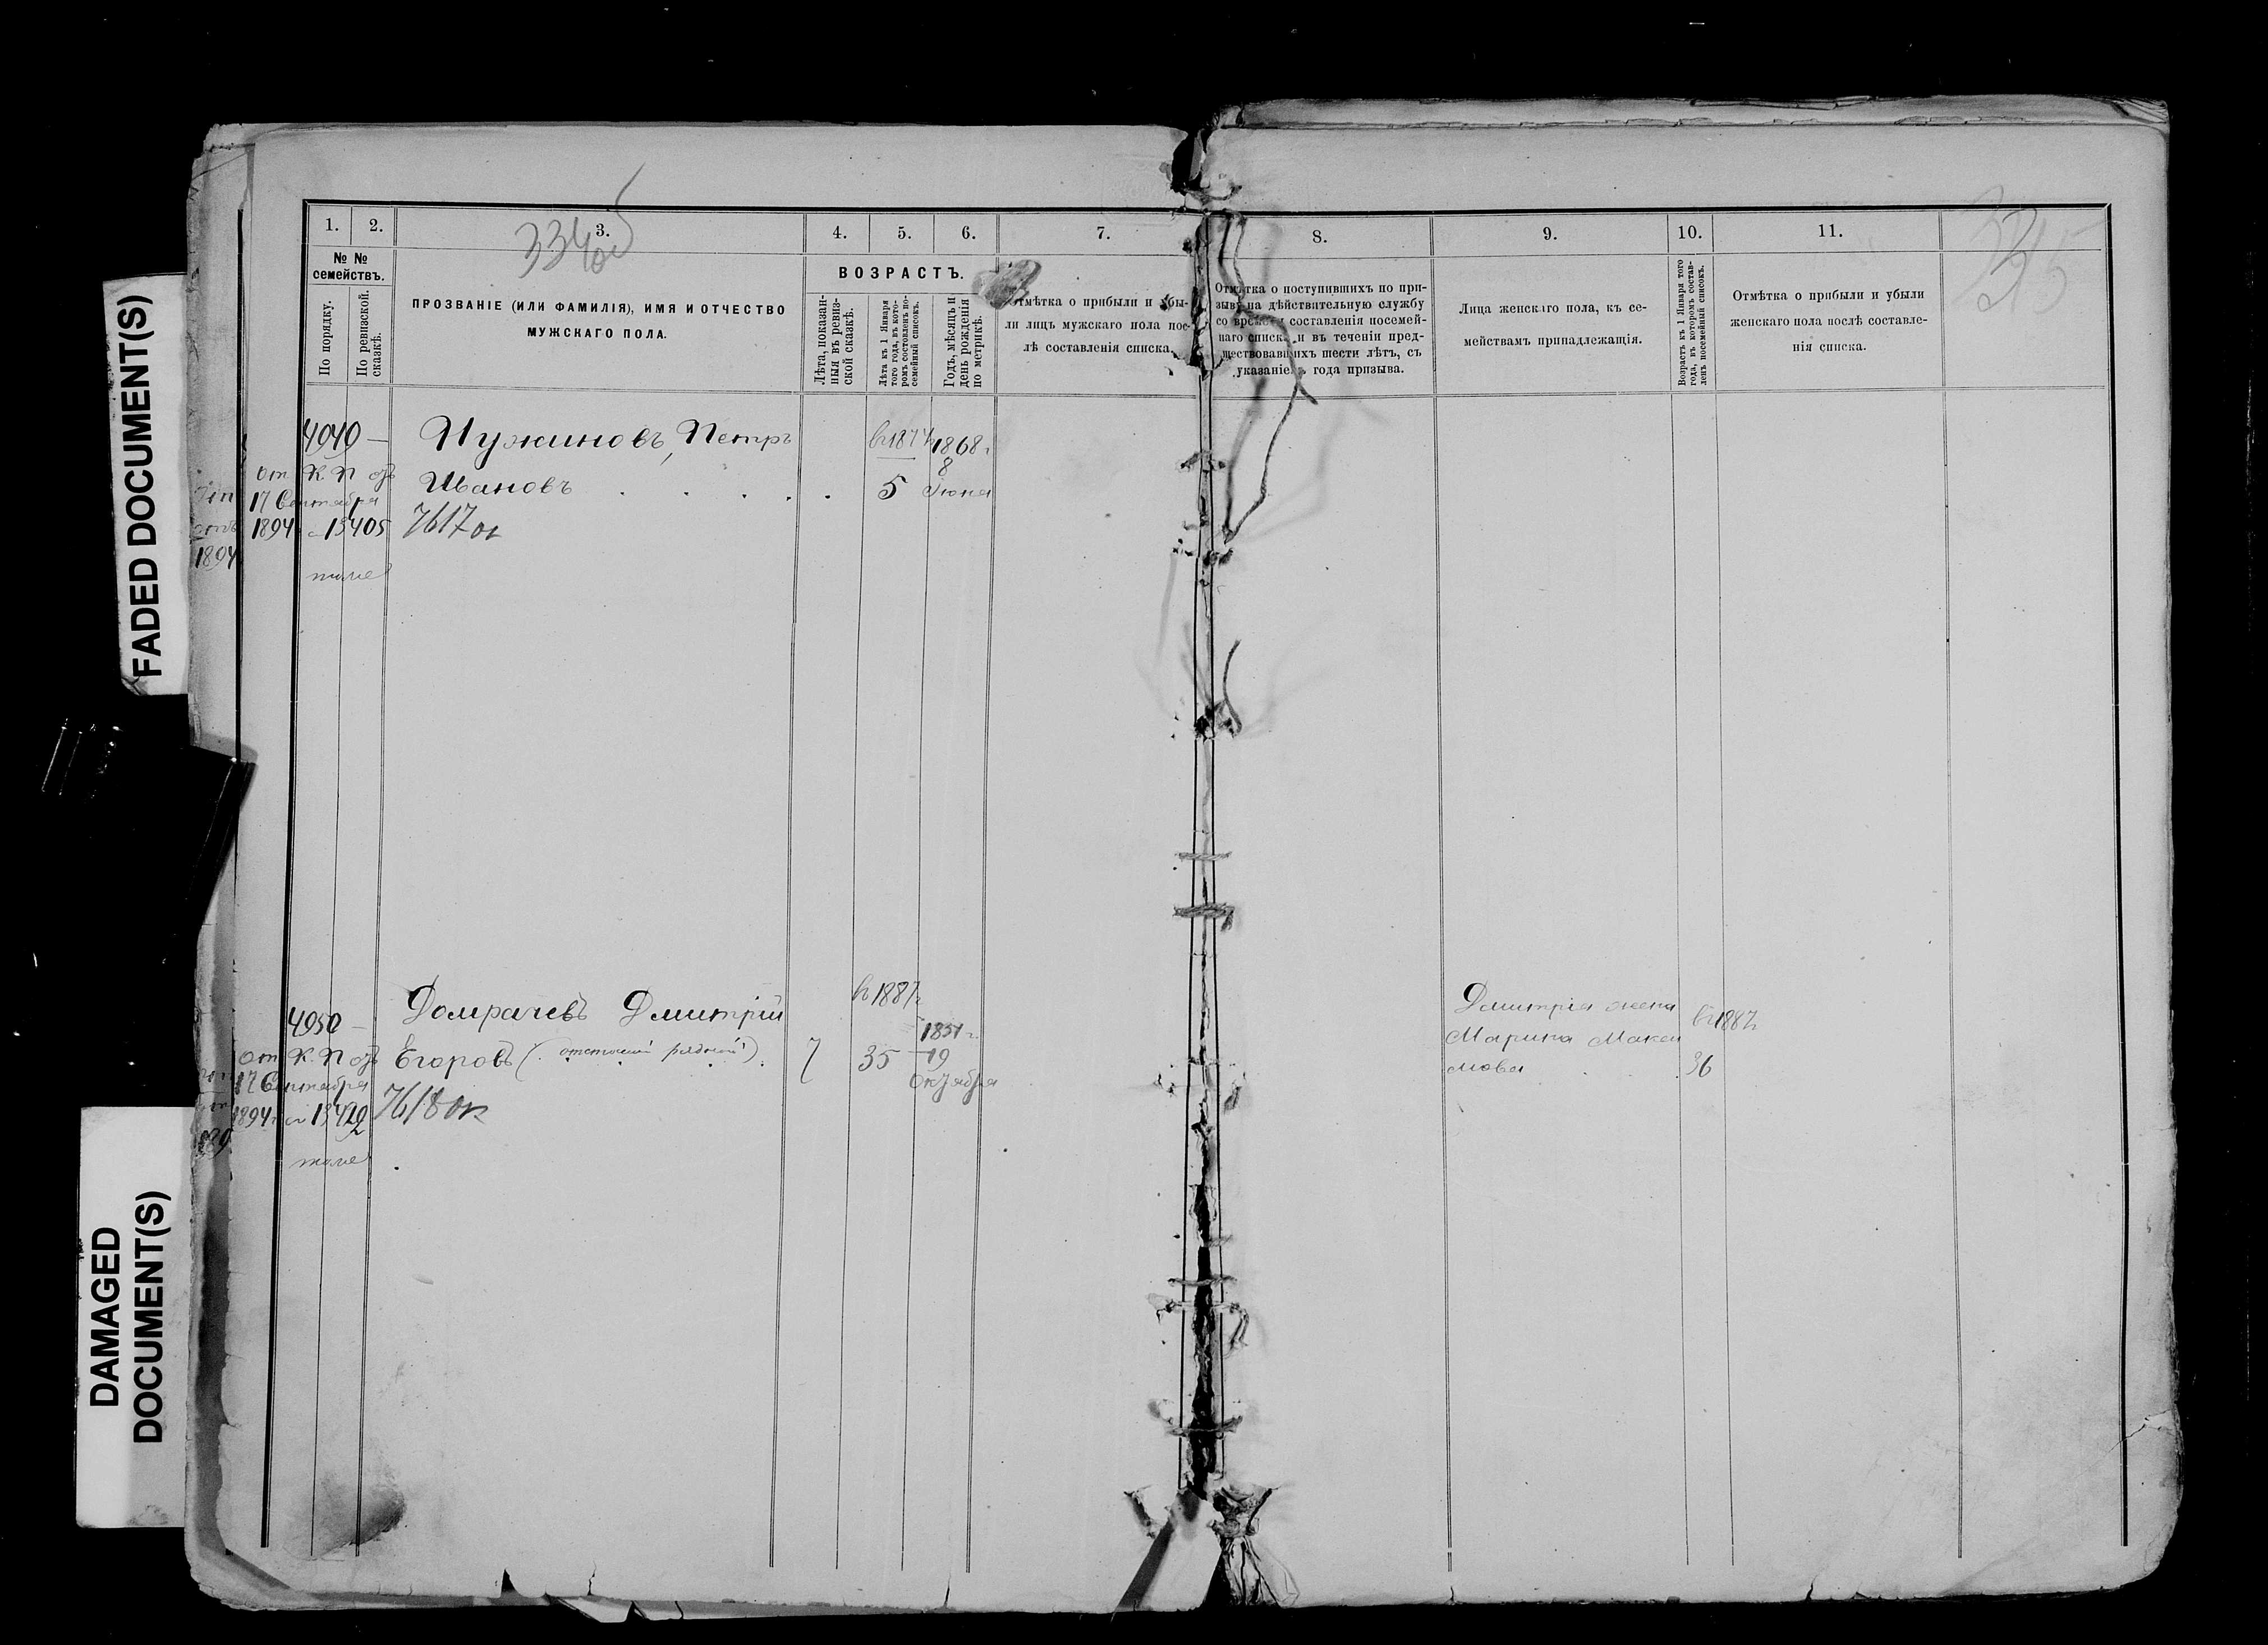 FADED DOCUMENT(S)
DAMAGED
DOCUMENT(S)
334 об
1. 2. 3. 4. 5. 6. 7. 8. 9. 10. 11.
№ №
семействъ.
По порядку.
По ревизской
сказкѣ.
ПРОЗВАНІЕ (ИЛИ ФАМИЛІЯ), ИМЯ И ОТЧЕСТВО
МУЖСКАГО ПОЛА.
ВОЗРАСТЪ.
Лѣта, показан-
ныя въ ревиз-
ской сказкѣ.
Лѣта къ 1 Января
того года, въ кото-
ромъ составленъ по-
семейный списокъ.
Годъ, мѣсяцъ и
день рожденія
по метрикѣ.
Отмѣтка о прибыли и убы-
ли лицъ мужскаго пола пос-
лѣ составленія списка.
Отмѣтка о поступившихъ по при-
зыву на дѣйствительную службу
со времени составленія посемей-
наго списка и въ теченіи пред-
шествовавшихъ шести лѣтъ, съ
указаніемъ года призыва.
Лица женскаго пола, къ се-
мействамъ принадлежащія.
Возрастъ къ 1 Января того
года, въ которомъ состав-
ленъ посемейный списокъ.
Отмѣтка о прибыли и убыли
женскаго пола послѣ составле-
нія списка.
4949 — Пужиновъ, Петръ 1868 г
от К. П. 8
Ивановъ 5 Іюня
17 Сентября
1894 13405 7617 ок
тоже
1894
в 1887 г
4950 — Домрачевъ Дмитрій
1851 г.
от К. П. Егоровъ (отставной рядовой) 7 35 19
17 Сентября Октября
1894 г 7618 ок
тоже
Дмитрія жена в 1887 г
Марина Макси
мова 36